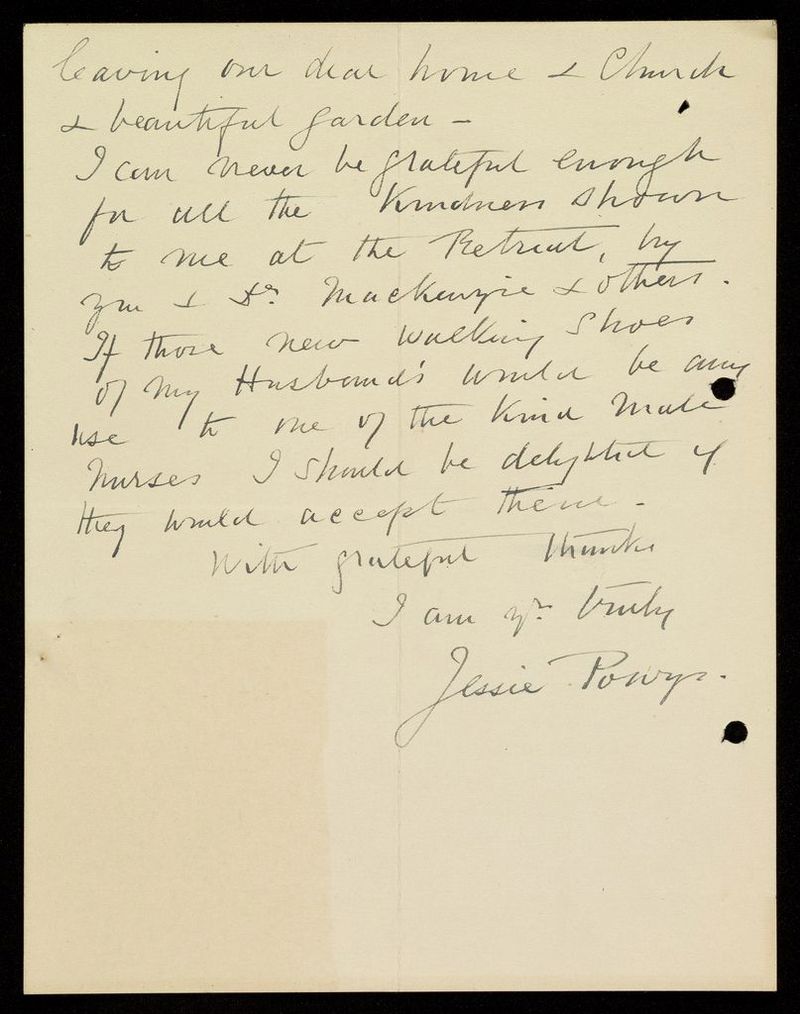 leaving our dear home & Church
& beautiful garden –
I can never be grateful enough
for all the kindness shown
to me at the Retreat, by
you & Dr. Mackenzie & others.
If those new walking shoes
of my Husband's would be any
use to one of the kind Male
Nurses I should be delighted if
they would accept them –
With grateful thanks
I am yr. truly
Jessie Powys.